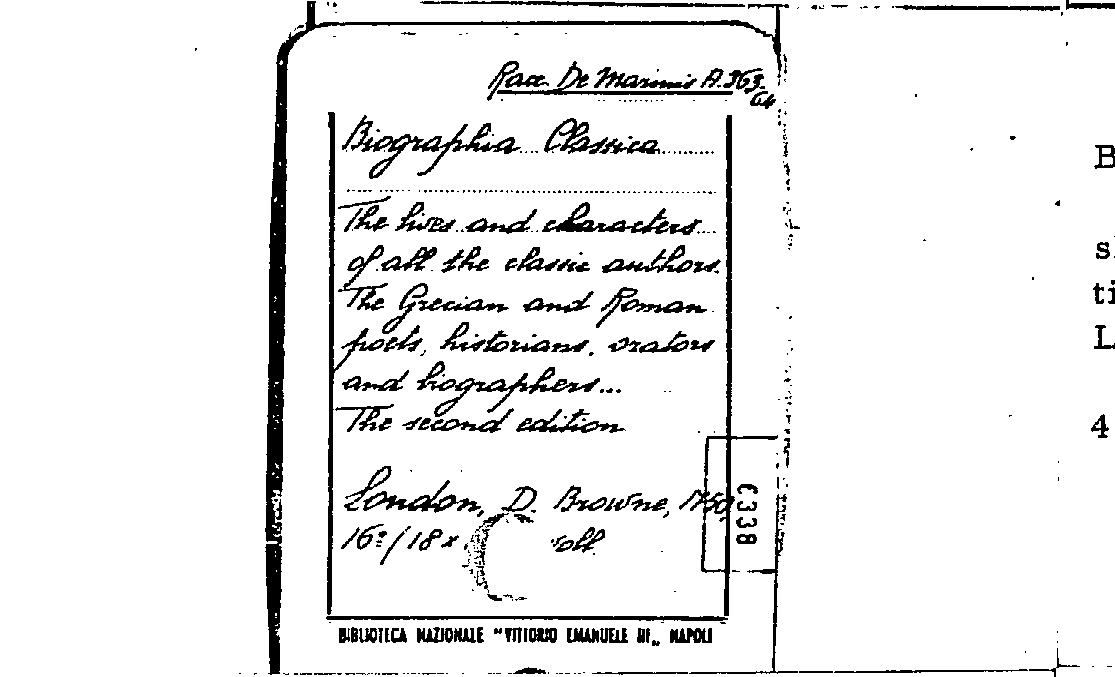 Racc. De Marinis A. 363-
64
Biographia Classica
The lives and characters
of all the classic authors.
The Grecian and Roman
poets, historians, orators
and biographers...
The second edition
London, D. Browne, 1750,
16º/18 x voll.
€338
BIBLIOTECA NAZIONALE "VITTORIO EMANUELE III„ NAPOLI
B
s
ti
L
4